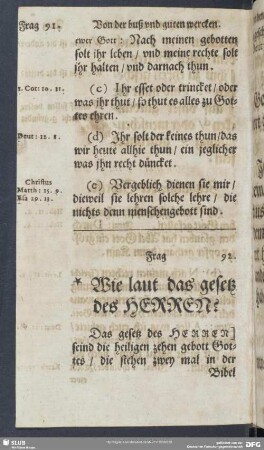 Frag 91.
Von der buß vnd guten wercken.
ewer Gott: Nach meinen gebotten
solt ihr leben / vnd meine rechte solt
jhr halten / vnd darnach thun.
1. Cor: 10. 31.
(c) Ihr esset oder trincket / oder
was ihr thut / so thut es alles zu Got-
tes ehren.
Deut: 12. 8.
(d) Ihr solt der keines thun / das
wir heute allhie thun / ein jeglicher
was jhn recht düncket.
Christus
Matth: 15. 9.
(e) Vergeblich dienen sie mir /
dieweil sie lehren solche lehre / die
nichts denn menschengebott sind.
Frag 92.
* Wie laut das gesetz
des HERREN?
Das gesetz des HERREN]
seind die heiligen zehen gebott Got-
tes / die stehen zwey mal in der
Bibel
SLUB
DFG